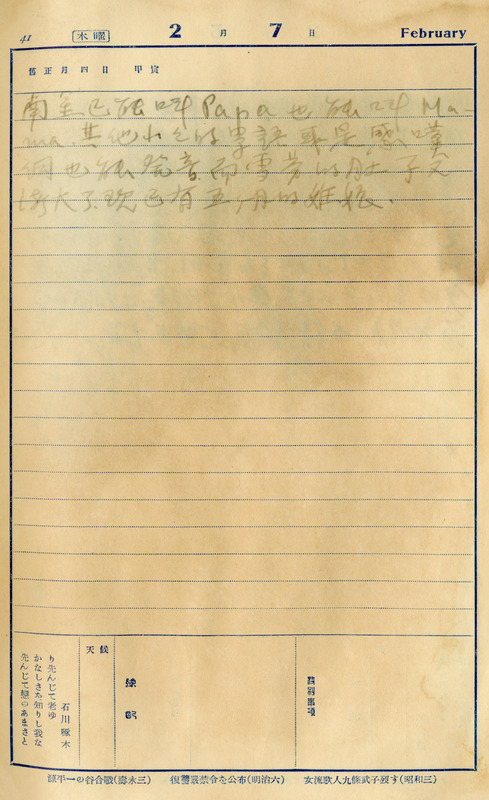 41 木曜 2月7日 February
舊正月四日 甲寅
南星已能叫Papa也能叫Ma-
ma.其他小さい的單語或是感嘆
詞也能發音.而雪芬的肚子又
漸大了.現已有五ヶ月的姙娠.
石川啄木
り先んじて老ゆ
かなしさを知りし我な
先んじて戀のあまさと
天候
豫記
特別事項
源平一の谷合戰(壽永三)
復讐嚴禁令を公布(明治六)
女流歌人九條武子歿す(昭和三)